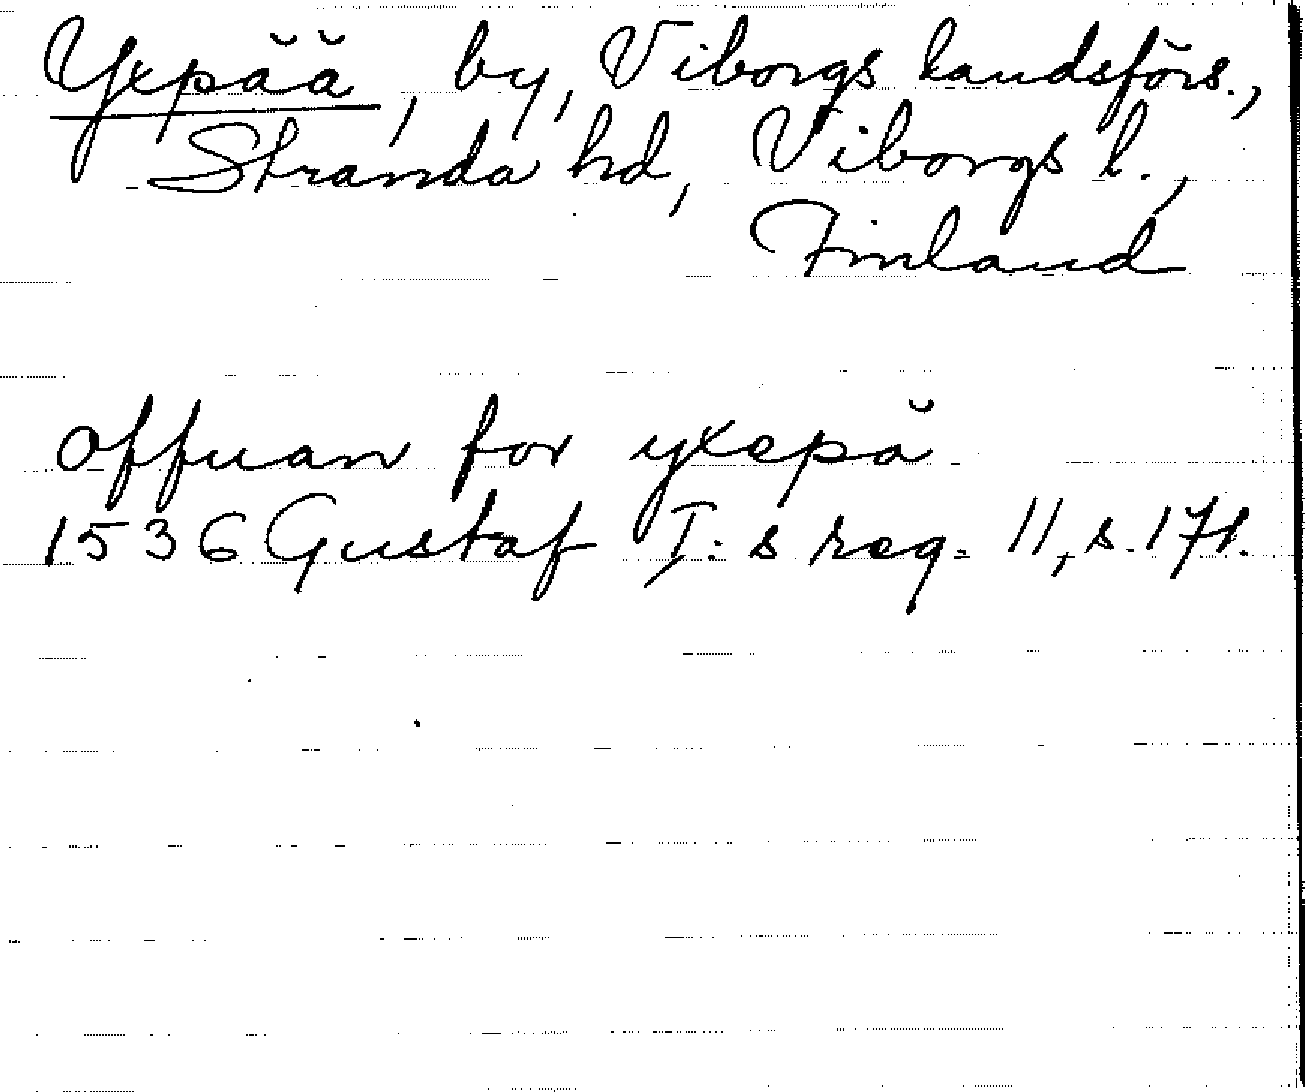 Yxpää, by, Viborgs landsförs.,
Stranda hd, Viborgs l.,
Finland
offuan for yxepä
1536 Gustaf I:s reg. 11, s. 171.